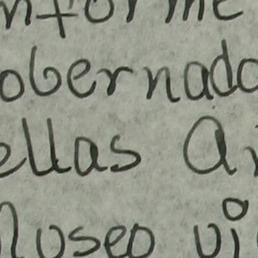 nforme
obernado
ellas A
oseo vi